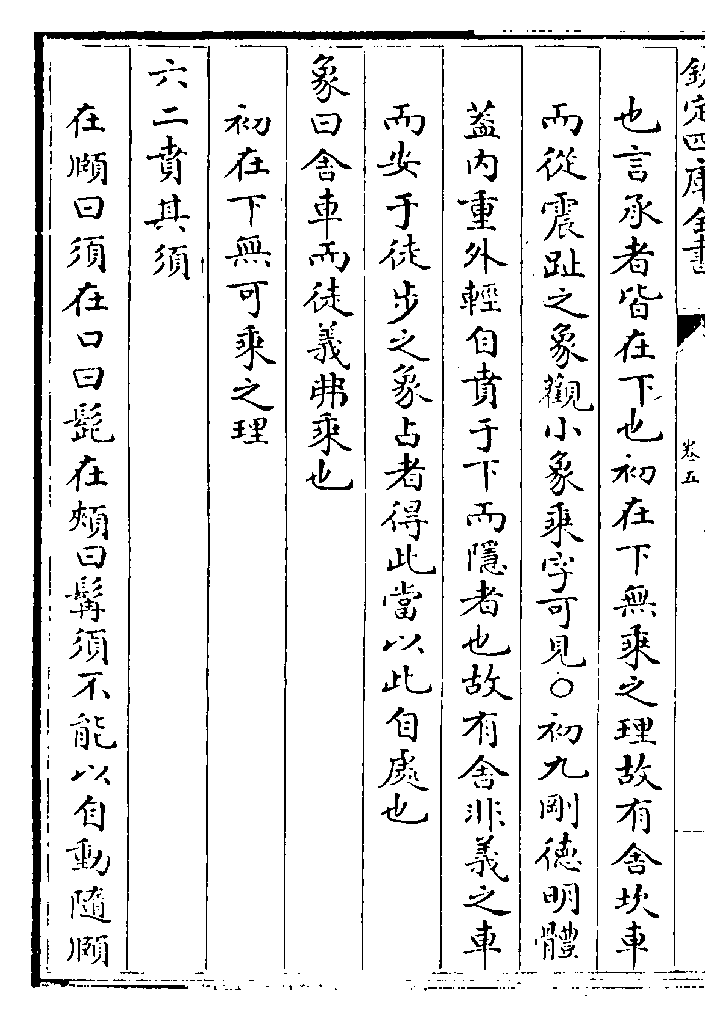 欽定四庫全書
卷五
也言承者皆在下也初在下無乘之理故有舍坎車
而從震趾之象觀小象乘字可見○初九剛德明體
蓋内重外輕自賁于下而隱者也故有舍非義之車
而安于徒步之象占者得此當以此自處也
象曰舍車而徒義弗乘也
初在下無可乘之理
六二賁其須
在頤曰須在口曰髭在頰曰髯須不能以自動隨頤